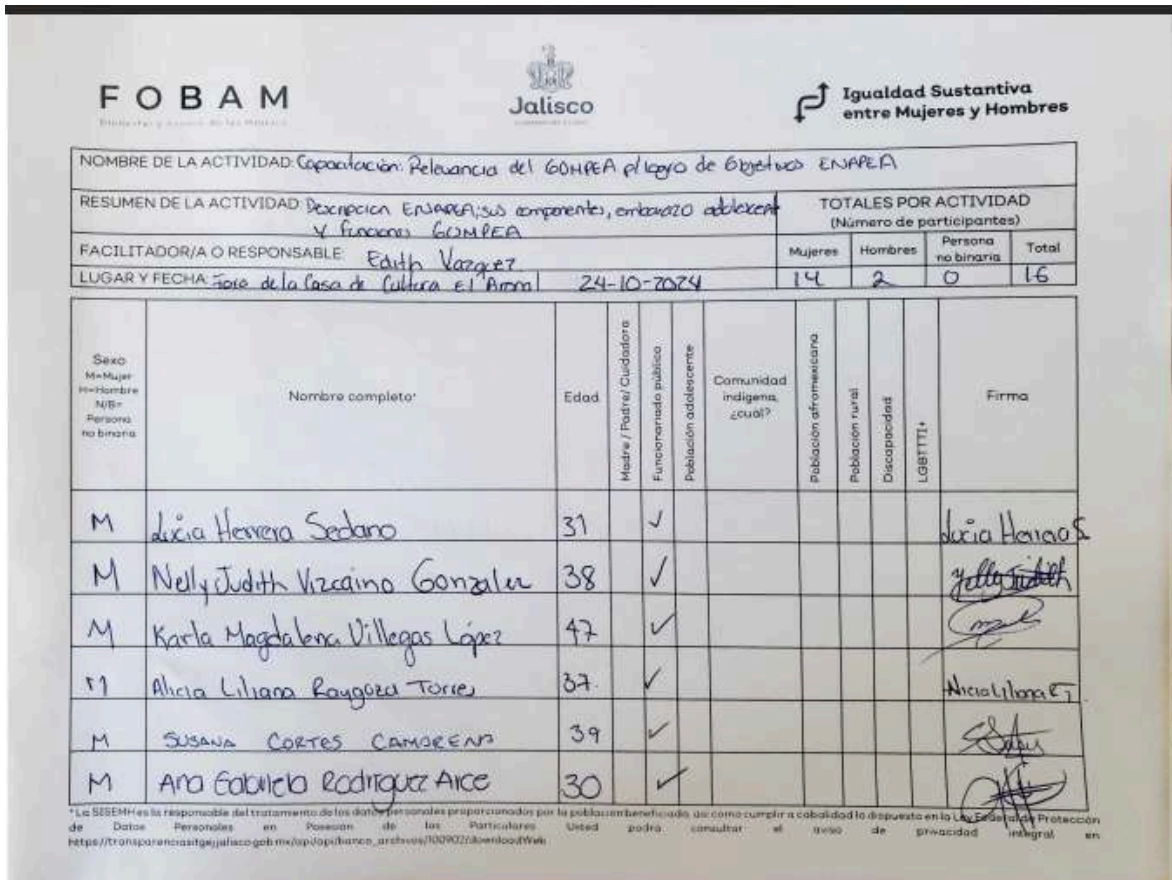 FOBAM
Jalisco
Igualdad Sustantiva
entre Mujeres y Hombres
NOMBRE DE LA ACTIVIDAD: Capacitación: Relevancia del GOMPEA p/logro de Objetivos ENAPEA
RESUMEN DE LA ACTIVIDAD: Descripcion ENAPEA, sus componentes, embarazo adolescent
y funciones GOMPEA
TOTALES POR ACTIVIDAD
(Número de participantes)
FACILITADOR/A O RESPONSABLE: Edith Vazquez
Mujeres Hombres Persona no binaria Total
LUGAR Y FECHA: Foro de la Casa de Cultura El 24-10-2024 14 2 0 16
Sexo
M=Mujer
H=Hombre
N/B=
Persona
no binaria
Nombre completo*
Edad
Madre / Padre/ Cuidadora
Funcionariado público
Población adolescente
Comunidad
indígena,
¿cuál?
Población afromexicana
Población rural
Discapacidad
LGBTTTI+
Firma
M Lucia Herrera Sedano 31 ✓ Lucia Herrera S.
M Nelly Judith Vizcaino Gonzalez 38 ✓ Nelly Judith
M Karla Magdalena Villegas López 47 ✓
M Alicia Liliana Raygoza Torres 37. ✓ Alicia Liliana RT.
M SUSANA CORTES CAMORENO 39 ✓
M Ana Gabriela Rodriguez Arce 30 ✓
*La SISEMH es la responsable del tratamiento de los datos personales proporcionados por la población beneficiada, así como cumplir a cabalidad lo dispuesto en la Ley Federal de Protección
de Datos Personales en Posesión de los Particulares Usted podrá consultar el aviso de privacidad integral en